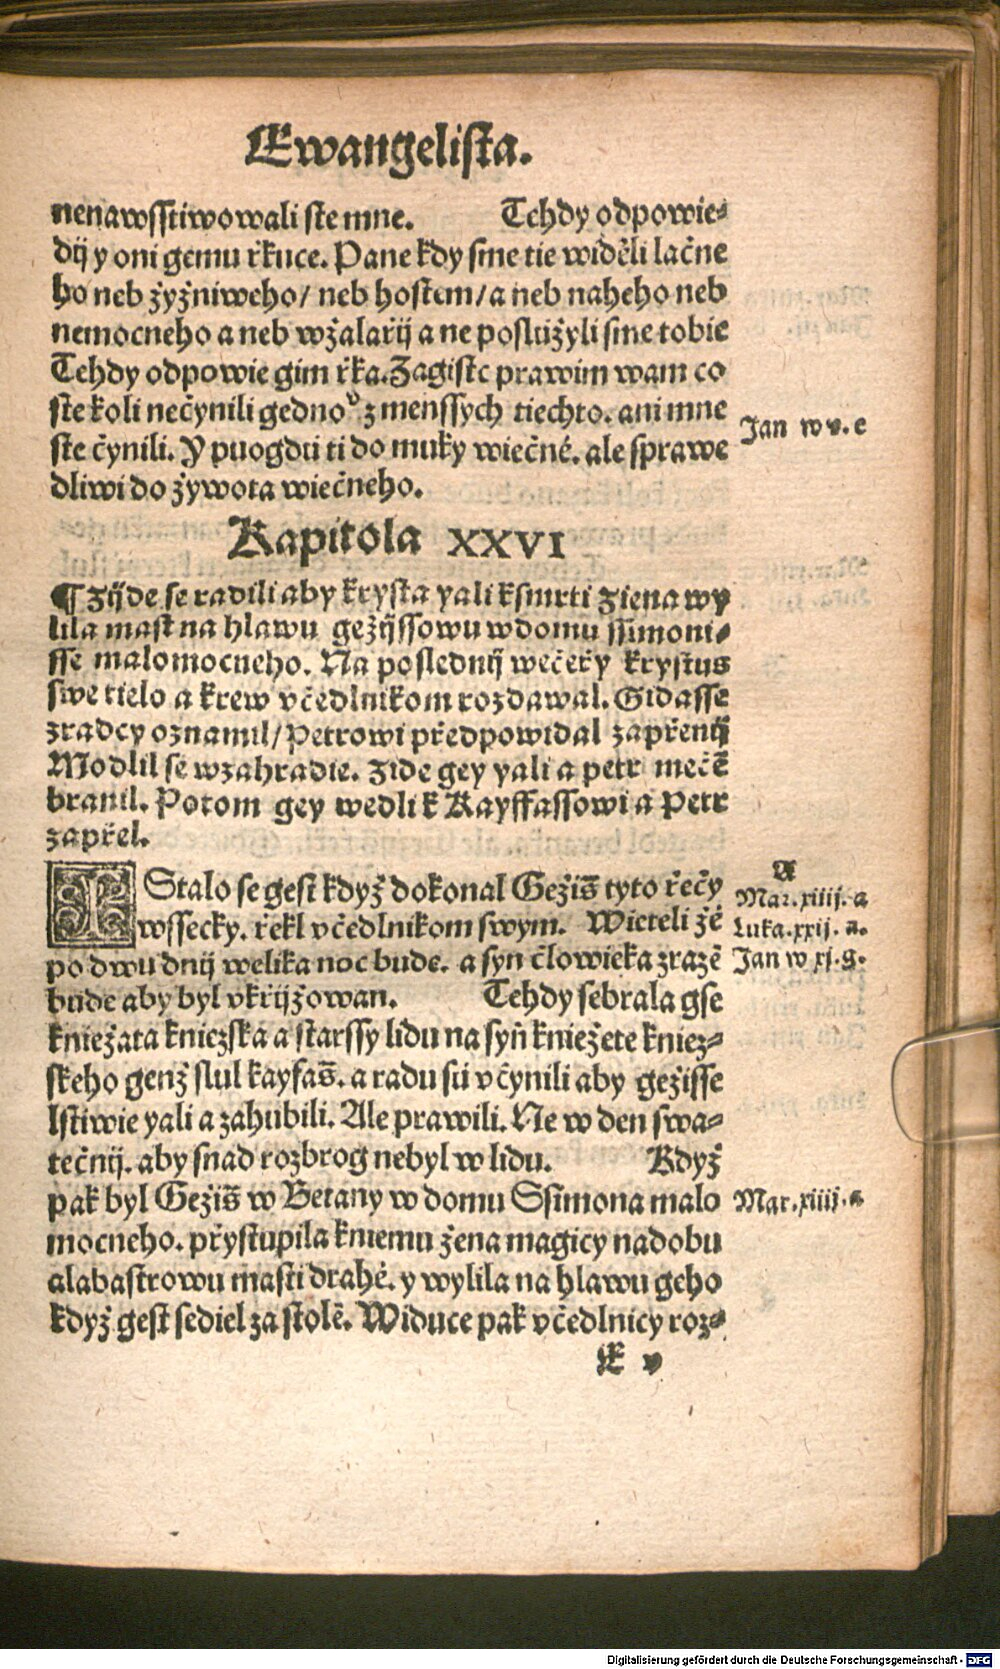 Ewangelista.
nenawsstiwowali ste mne. Tehdy odpowie⸗
dij y oni gemu rkuce. Pane kdy sme tie widěli lačne
ho neb žyžniweho/ neb hostem/ a neb naheho neb
nemocneho a neb wžalařij a ne poslužyli sme tobie
Tehdy odpowie gim řka. Zagiste prawim wam co
ste koli nečynili gednoͮ z menssych tiechto. ani mne
ste čynili. Y puogdu ti do muky wiečné. ale sprawe
dliwi do žywota wiečneho.
Jan w v. e
Kapitola XXVI
¶ Zijde se radili aby krysta yali k smrti ziena wy
lila mast na hlawu gežijssowu w domu ssimoni⸗
sse malomocneho. Na poslednij wečeřy krystus
swe tielo a krew včedlnikom rozdawal. Gidasse
zradcy oznamil/ Petrowi předpowidal zapřenij
Modlil se w zahradie. Zide gey yali a petr mečē
branil. Potom gey wedli k Kayffassowi a Petr
zapřel.
I Stalo se gest když dokonal Gežiš tyto řečy
wssecky. řekl včedlnikom swym. Wieteli žě
po dwu dnij welika noc bude. a syn člowieka zrazē
bude aby byl vkřijžowan. Tehdy sebrala gse
kniežata kniezska a starssy lidu na syň kniežete kniez⸗
skeho genž slul kayfaš. a radu sú včynili aby gežisse
lstiwie yali a zahubili. Ale prawili. Ne w den swa⸗
tečnij. aby snad rozbrog nebyl w lidu. Když
pak byl Gežiš w Betany w domu Ssimona malo
mocneho. přystupila k niemu žena magicy nadobu
alabastrowu masti drahé. y wylila na hlawu geho
když gest sediel za stolē. Widuce pak včedlnicy roz⸗
A
Mar. xiiij. a
Luka. xxij. a.
Jan w xj. g.
Mar. xiiij. a
E v
Digitalisierung gefördert durch die Deutsche Forschungsgemeinschaft - DFG